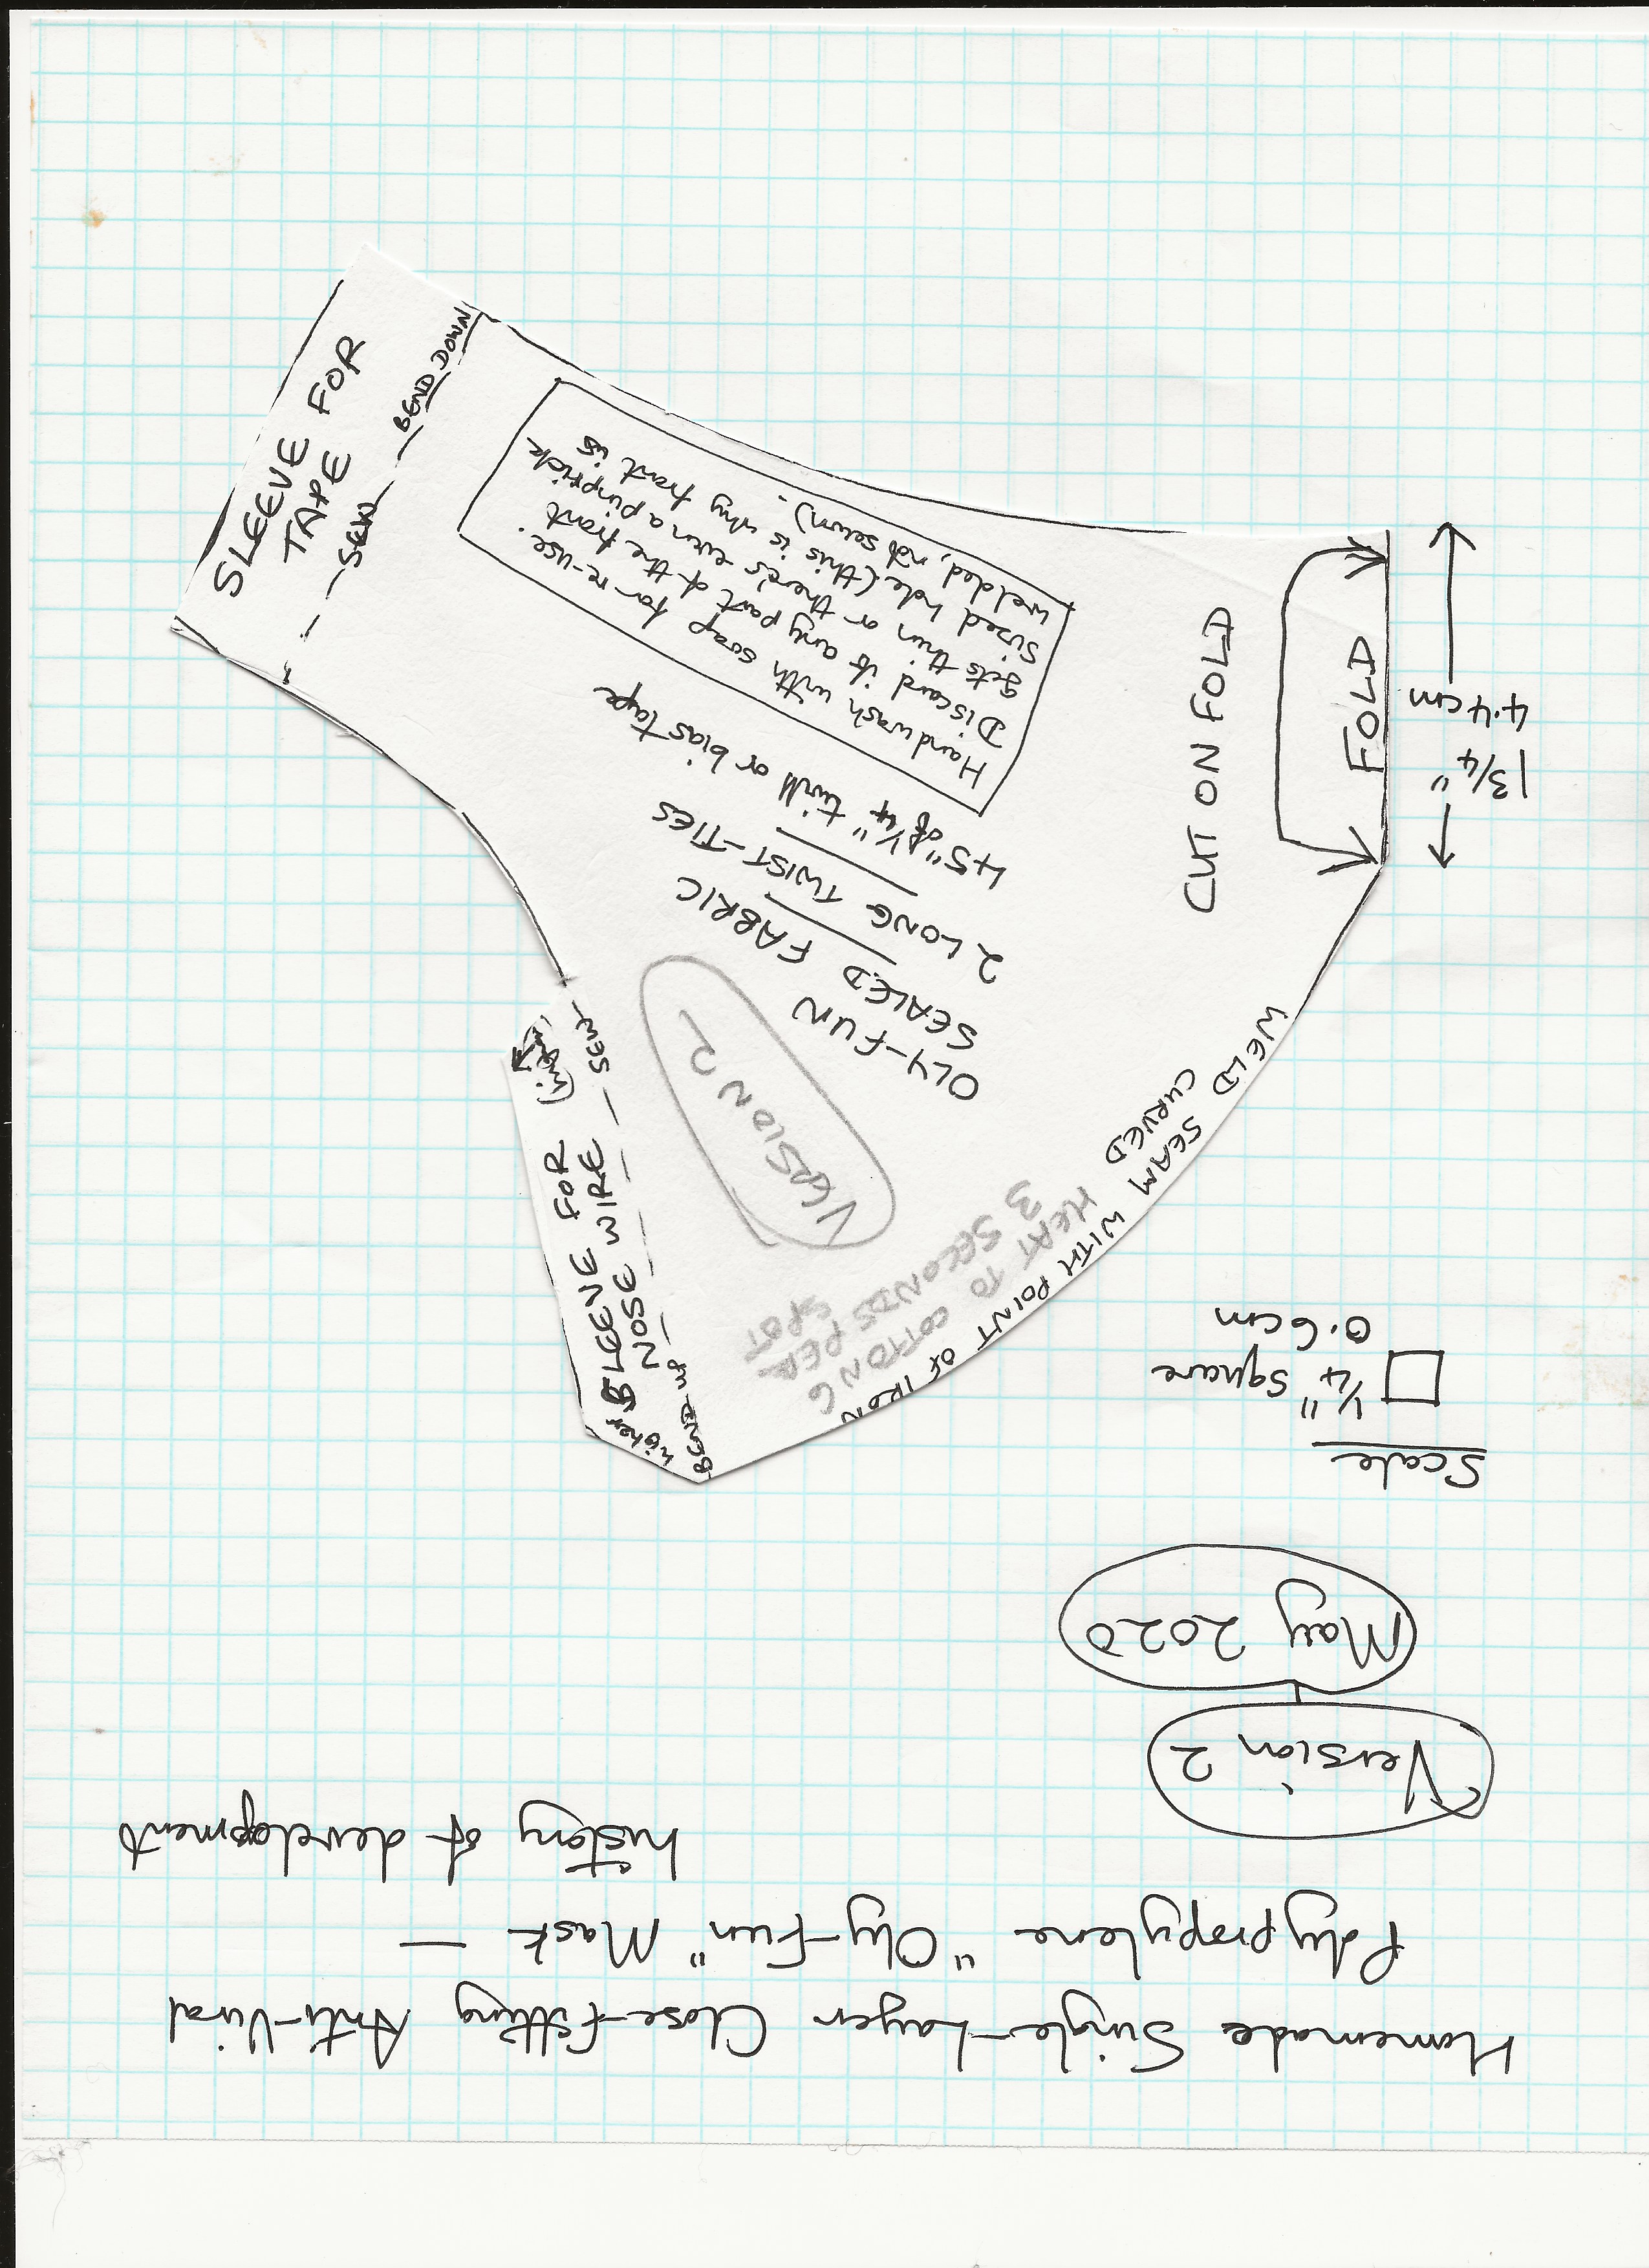 Homemade Single-Layer Close-fitting Anti-Viral
Polypropylene "Oly-Fun" Mask —
history of development
Version 2
May 2020
Scale
1/4" Square
0.6cm
1 3/4"
4.4cm
FOLD
CUT ON FOLD
WELD SEAM WITH POINT OF IRON
CURVED
HEAT TO COTTON 6
3 SECONDS PER
SPOT
VERSION 2
OLY-FUN
SEALED FABRIC
2 LONG TWIST-TIES
45" of 1/4" twill or bias tape
Handwash with soap for re-use.
Discard if any part of the front
gets thin or there's even a pinprick
sized hole (this is why front is
welded, not sewn).
SLEEVE FOR
TAPE
SEW
BEND DOWN
higher
SLEEVE FOR
NOSE WIRE
BEND UP
SEW